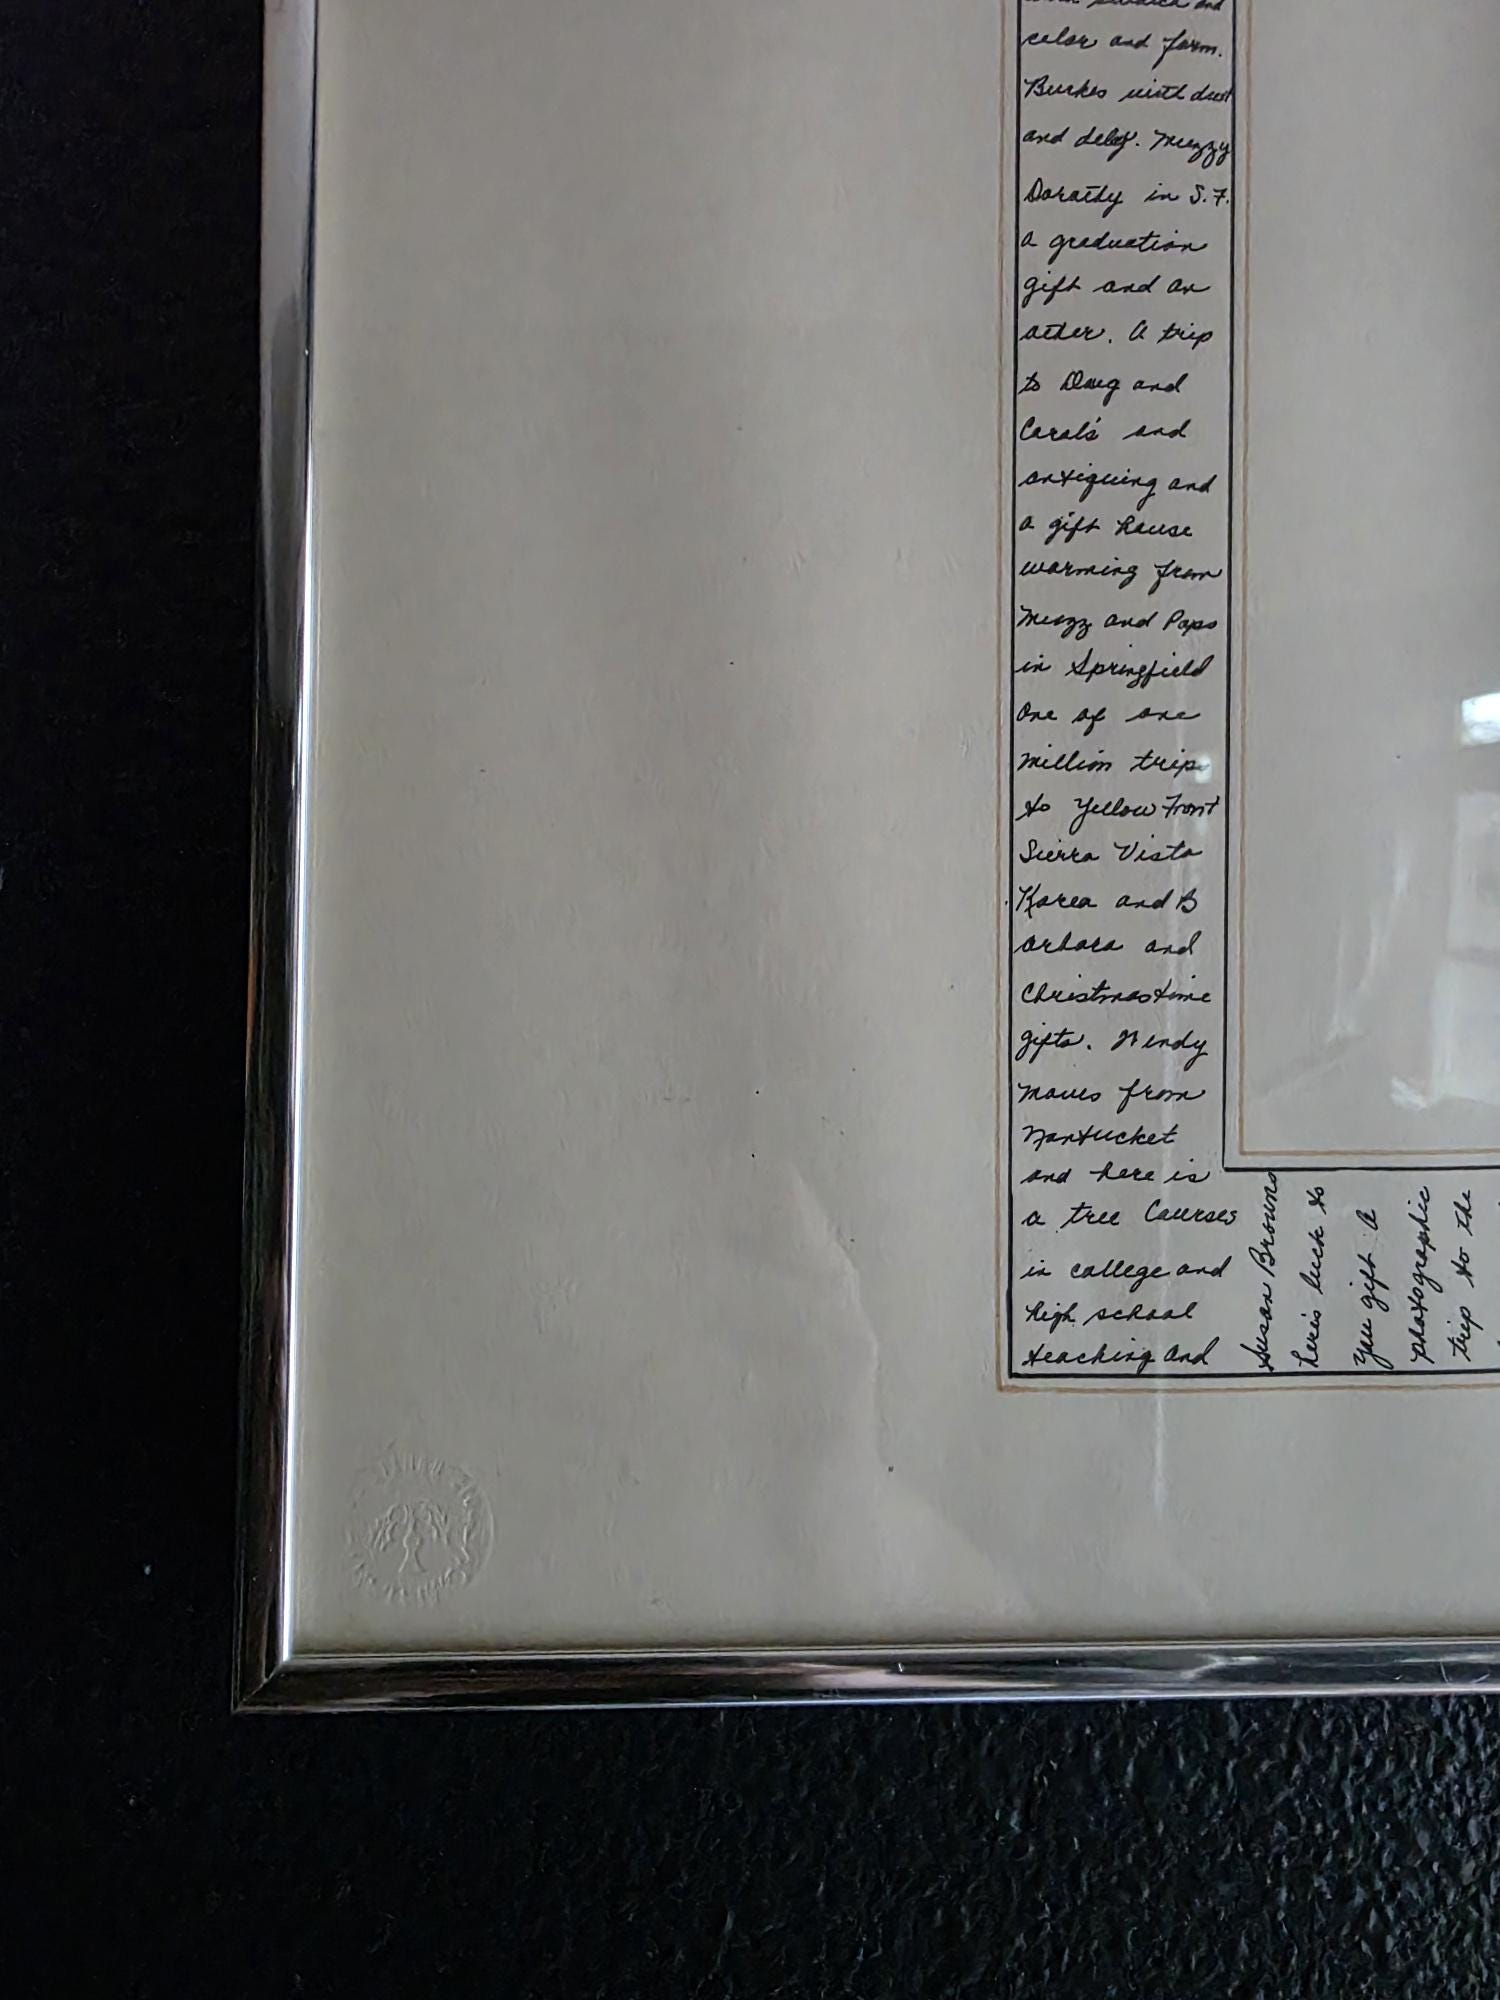 and
color and form.
Burkes with dust
and delay. Muzzy
Dorothy in S.F.
a graduation
gift and an
other. A trip
to Doug and
Carol's and
antiquing and
a gift house
warming from
Muzz and Paps
in Springfield
One of one
million trips
to Yellow Front
Sierra Vista
Korea and B
arbara and
Christmas time
gifts. Wendy
moves from
Nantucket
and here is
a tree Courses
in college and
high school
teaching and
Susan Browns
here's luck to
you gift A
photographic
trip to the